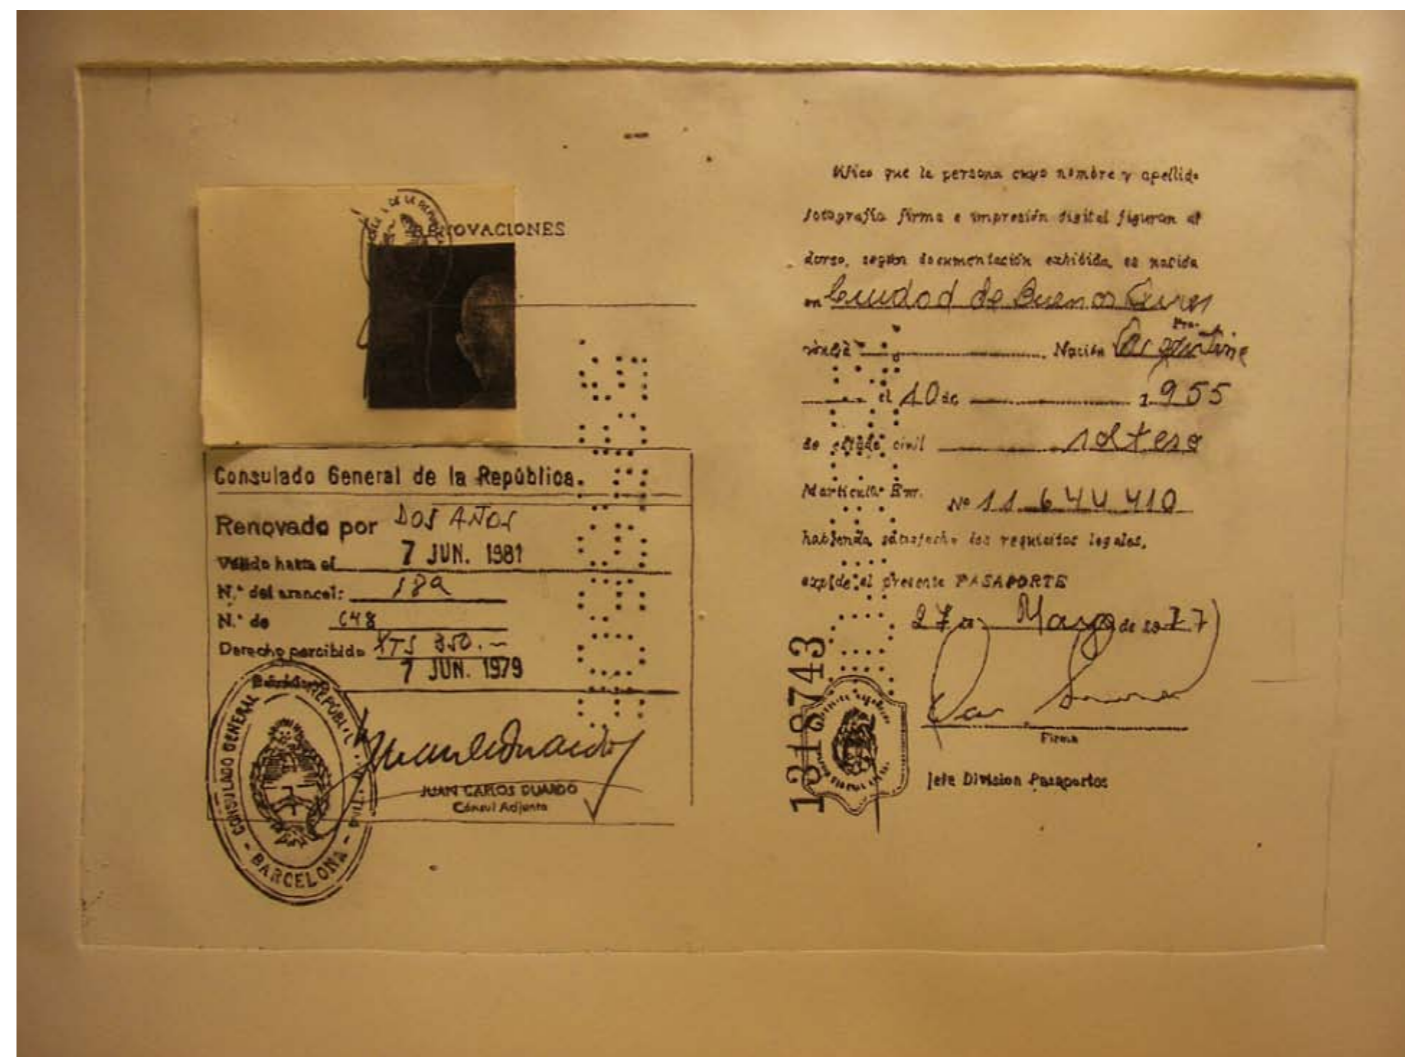 RENOVACIONES
Consulado General de la República.
Renovado por DOS AÑOS
Válido hasta el 7 JUN. 1981
N.º del arancel: 189
N.º de 648
Derecho percibido 350.-
7 JUN. 1979
CONSULADO GENERAL
BARCELONA
JUAN CARLOS DUARDO
Cónsul Adjunto
que la persona cuyo nombre y apellido
fotografía firma e impresión digital figuran al
dorso, según documentación exhibida, es nacida
en Ciudad de Buenos Aires
Nación Argentina
el 10 de 1955
de estado civil soltero
No 11 644 410
habiendo satisfecho los requisitos legales,
expide el presente PASAPORTE
27 de Mayo de 1977
Firma
Jefe Division Pasaportes
1318743